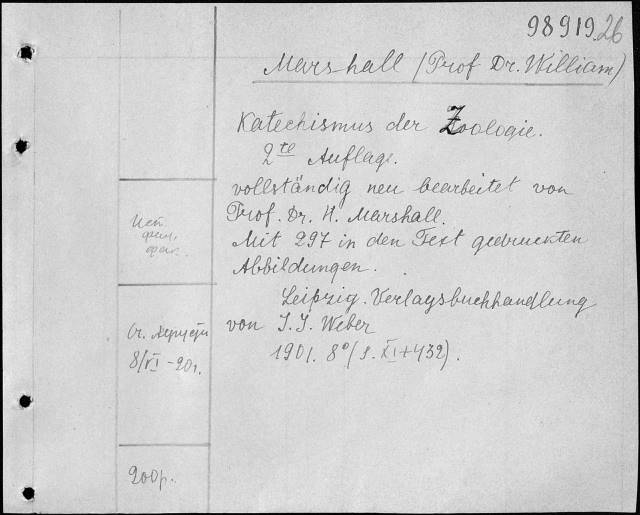 98919.26
Marshall (Prof Dr. William)
Katechismus der Zoologie.
2te Auflage.
vollständig neu bearbeitet von
Prof. Dr. H. Marshall.
Mit 297 in den Text gedruckten
Abbildungen.
Leipzig. Verlagsbuchhandlung
von J. J. Weber
1901. 8° (S. XI+432).
8/VI - 20г.
200р.